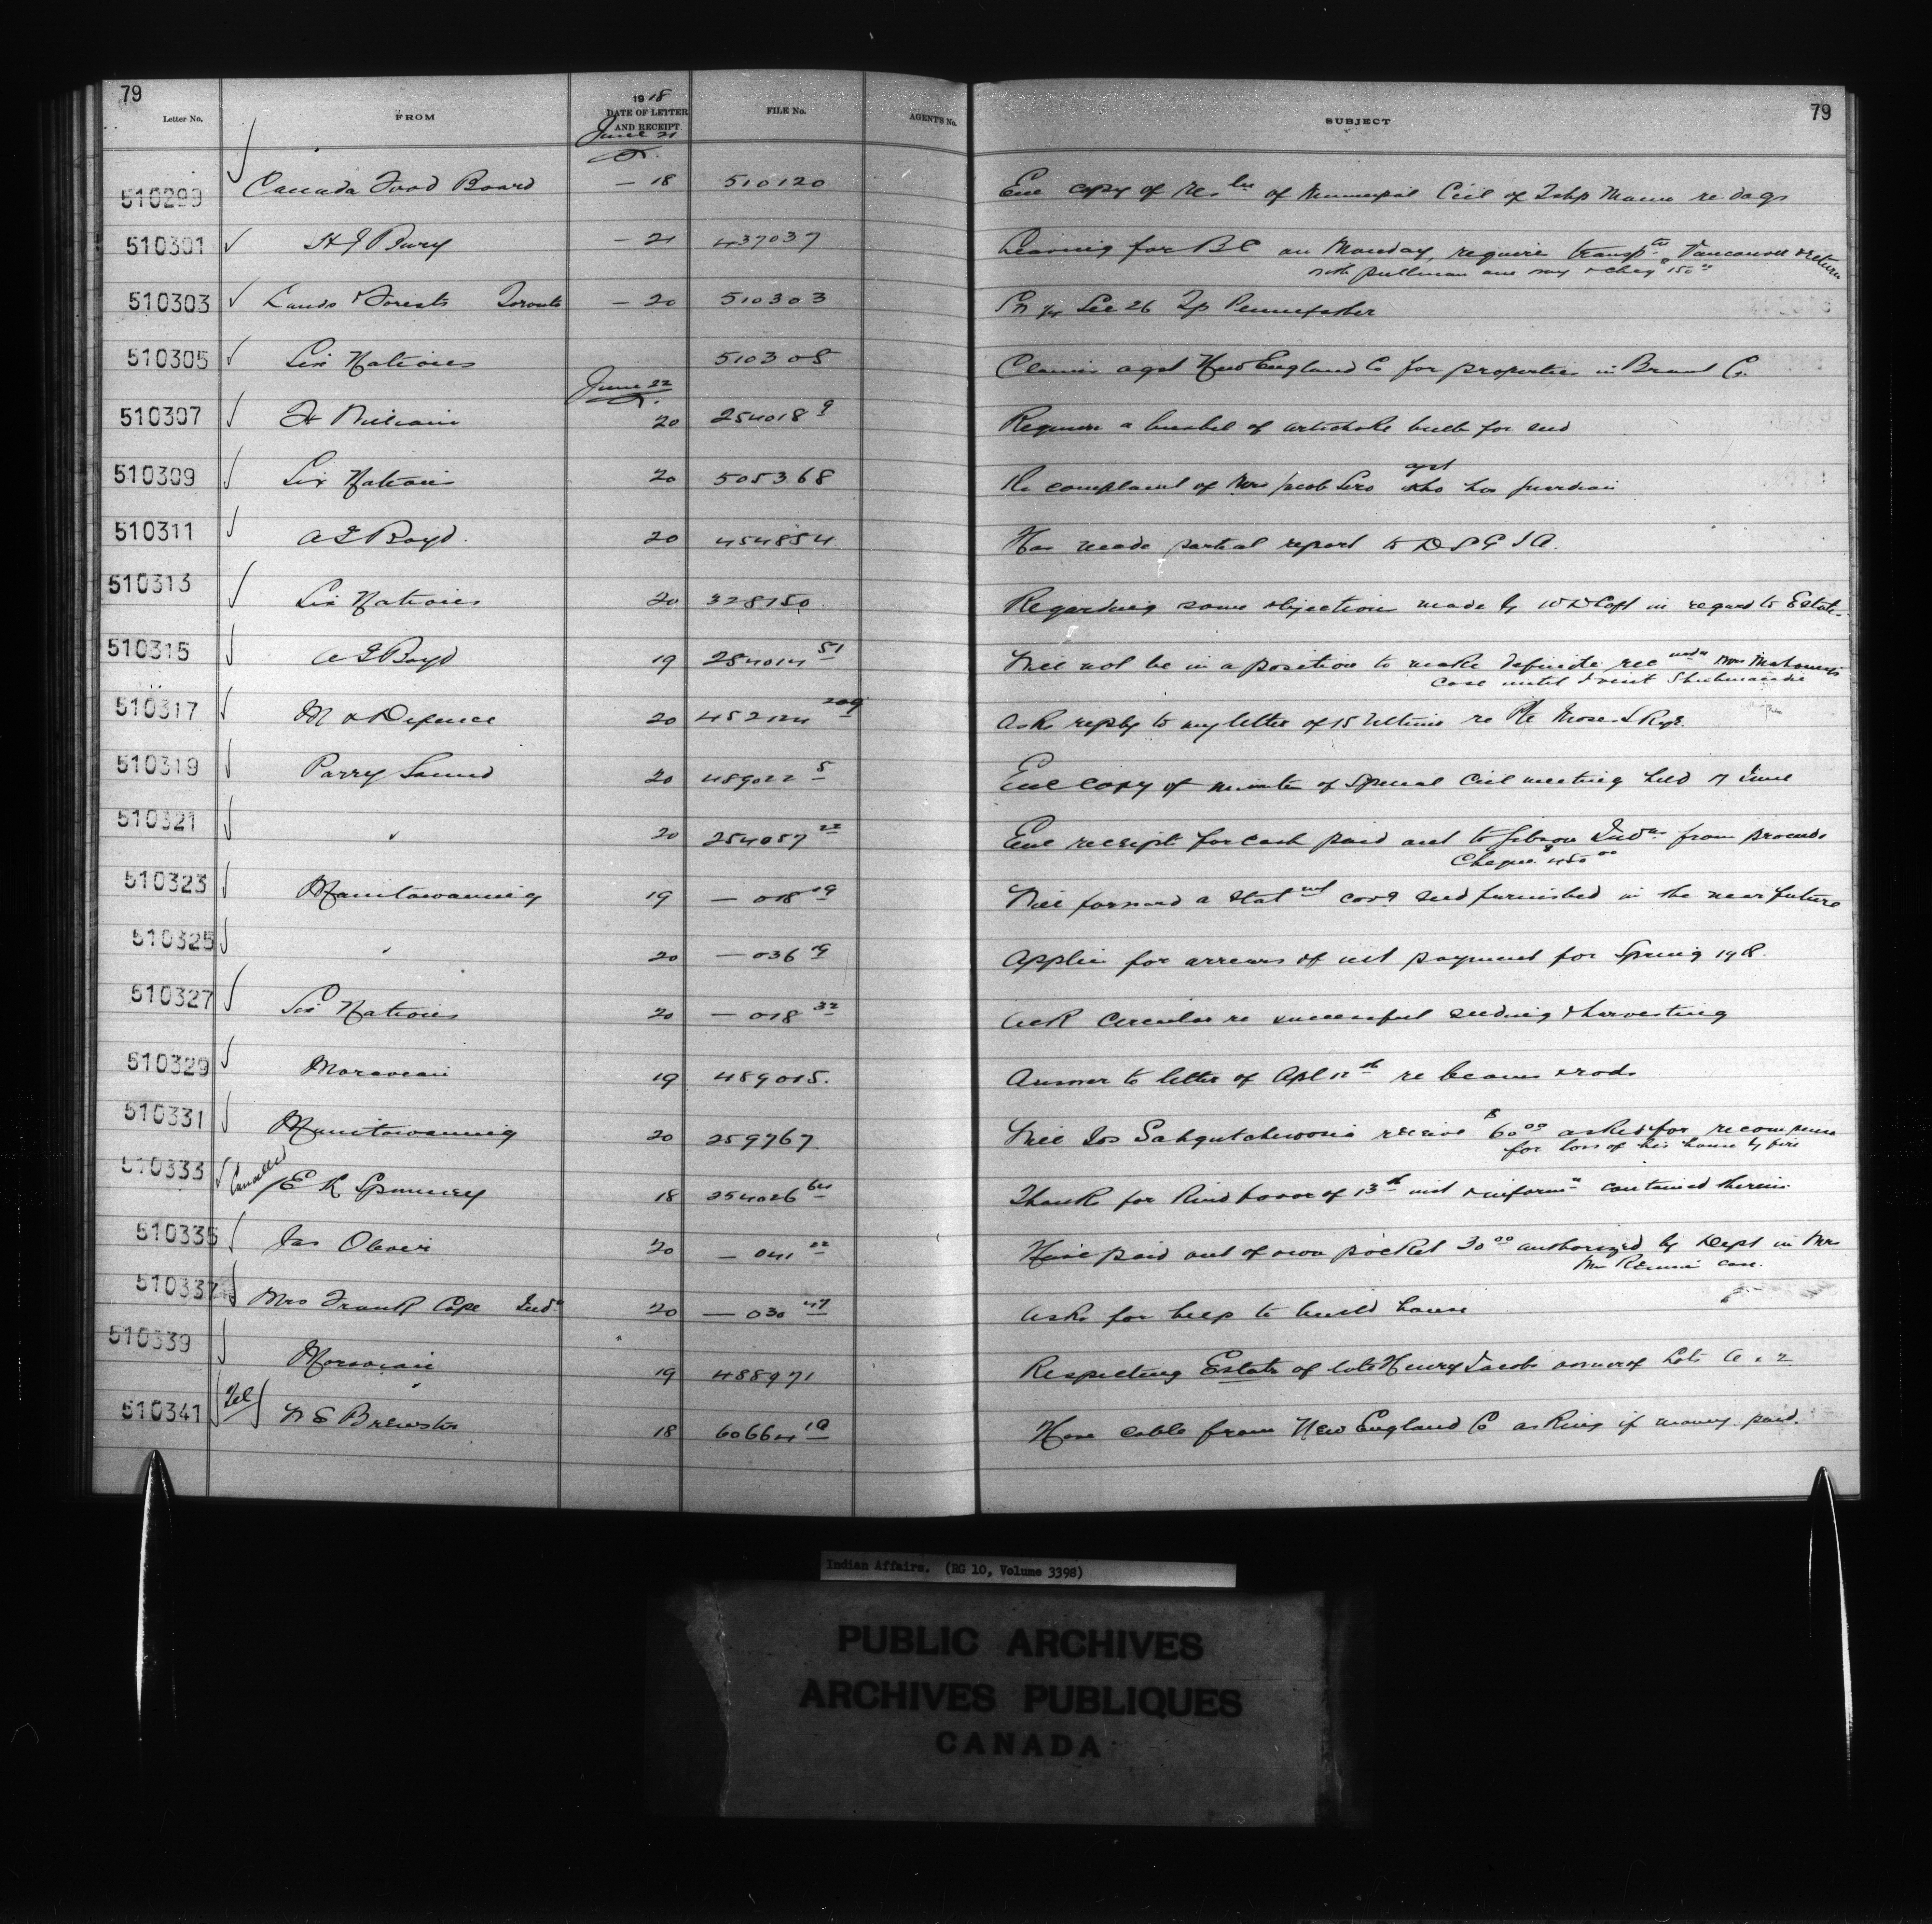 79
Letter No. FROM 1918 DATE OF LETTER AND RECEIPT FILE No. AGENT'S No. SUBJECT 79
June 21
510299 Canada Food Board — 18 510120 Enc copy of of Municipal Ccil of re dogs
510301 H J Bury — 21 437037 Leaving for B C on Monday, require transptn Vancouver & return
with pullman and cheq 150 00
510303 Lands & Forests Toronto — 20 510303 Sec 26 Tp Pennefather
510305 Six Nations 510305 Claims agst New England Co for properties in Brant Co.
June 22
510307 Ft William 20 254018 9 Requires a bushel of artichoke bulbs for seed
510309 Six Nations 20 505368 Re complaint of Mrs Jacob agst who her guardian
510311 A J Boyd. 20 454854 Has made partial report to D S G I A.
510313 Six Nations 20 328150. Regarding some objections made by in regard to Estate.
510315 A J Boyd 19 254014 51 Will not be in a position to make definite rec under Mrs
case until I visit Shubenacadie
510317 M & Defence 20 452124 Asks reply to my letter of 15 Ultimo re Pte Moses
510319 Parry Sound 20 489022 5 Enc copy of minutes of Special Ccil meeting held 7 June
510321 " 20 254057 22 Enc receipts for cash paid out to Gibson Indns from proceeds
Cheque $450 00
510323 Manitowaning 19 — 018 19 Will forward a Statmt covg seed furnished in the near future
510325 " 20 — 036 19 Applies for arrears of int payment for Spring 1918.
510327 Six Nations 20 — 018 32 Ack Circular re successful seeding & harvesting
510329 Moravian 19 489015. Answer to letter of Apl 12th re beams & rods
510331 Manitowaning 20 259767 Will Jos receive $60 00 asked for recompense
for loss of his house by fire
510333 Cancelled E K Spinney 18 254026 64 Thanks for kind favor of 13th inst & informn contained therein.
510335 Jas Oliver 20 — 041 22 Have paid out of own pocket 30 00 authorized by Dept in Mrs
case.
510337 Mrs Frank Cope Indn 20 — 030 47 Asks for help to build house
510339 Moravian 19 488971 Respecting Estate of late Henry Jacobs owner of Lots A & 2
510341 Tel W S Brewster 18 60664 1A Have cable from New England Co asking if money paid.
Indian Affairs. (RG 10, Volume 3398)
PUBLIC ARCHIVES
ARCHIVES PUBLIQUES
CANADA